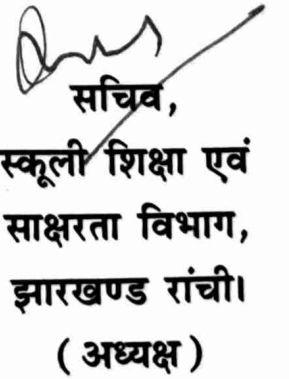 सचिव,
स्कूली शिक्षा एवं
साक्षरता विभाग,
झारखण्ड रांची।
( अध्यक्ष )